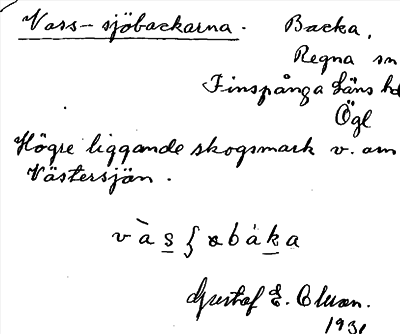 Vass-sjöbackarna. Backa,
Regna sn
Finspånga läns hd
Ögl
Högre liggande skogsmark v. om
Västersjön.
Gustaf E.
1931